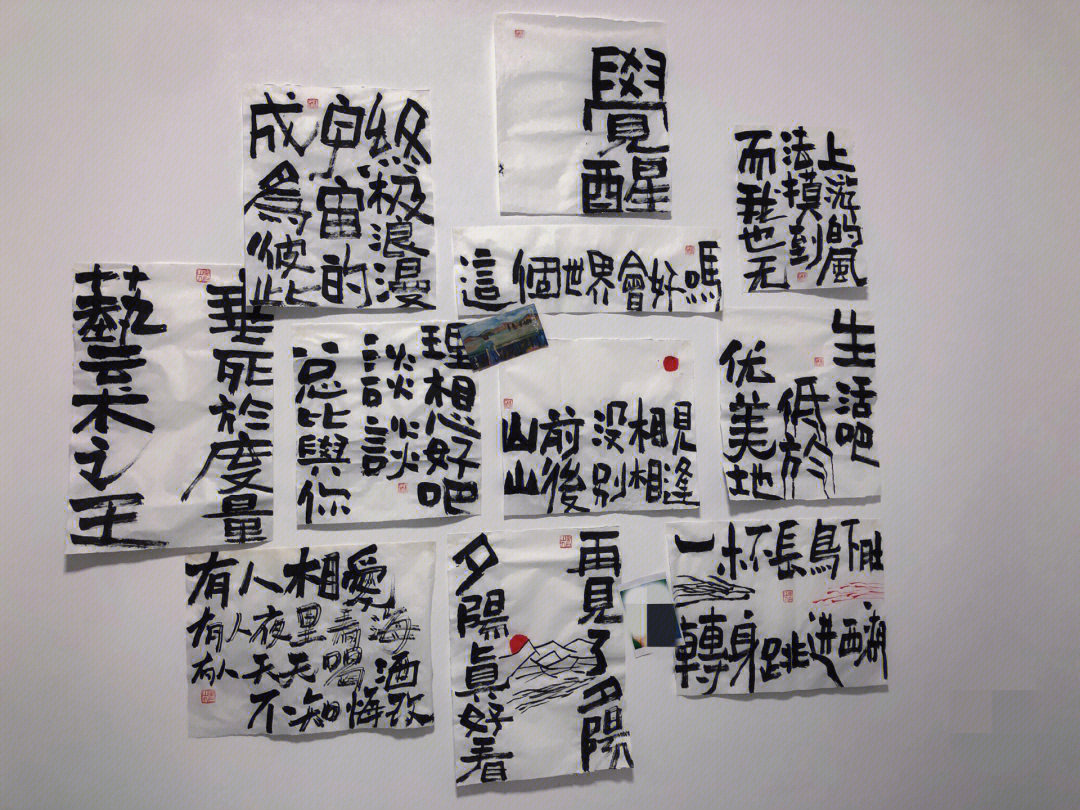 覺醒
成為彼此
宇宙的
終极浪漫
而我也无
法摸到
上游的風
這個世界會好嗎
藝术之王
垂死於度量
总比與你
談談
理想好吧
山前没相見
山後别相逢
优美地
低於
生活吧
有人相愛
有人夜里看海
有人天天喝酒
不知悔改
夕陽真好看
再見了夕陽
一杯長鳥下肚
轉身跳进西湖